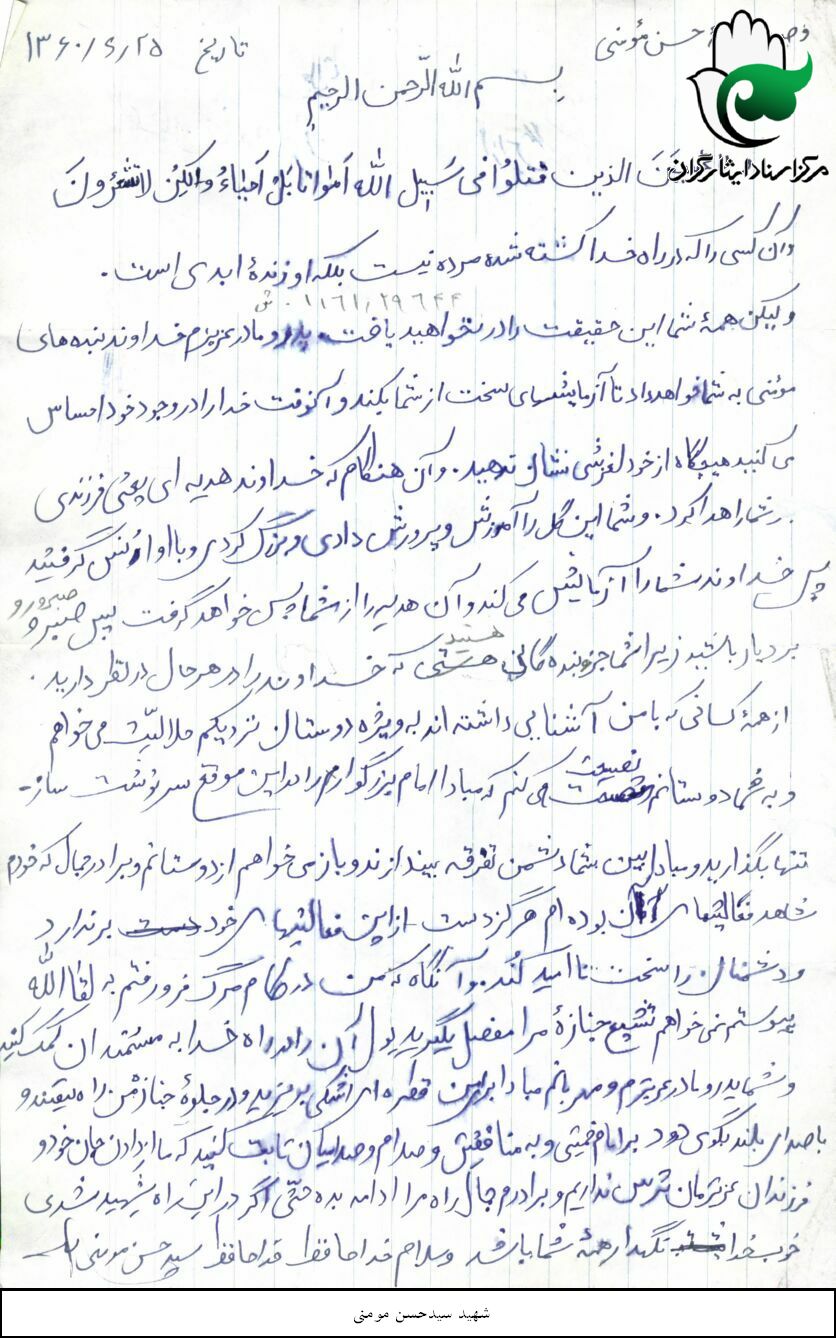 حسن مؤمنی تاریخ ۱۳۶۰/۶/۲۵
بسم الله الرّحمن الرحیم
مرکز اسناد ایثارگران
الذین قتلوُا فی سَبیل الله اَمواتا بَلْ اَحیاءُ و لکِنْ لا تشعُرونَ
و آن کسی را که در راه خدا کشته شده مرده نیست بلکه او زندهٔ ابدی است.
۱۱۶۱,۲۹۶۴۴
ولیکن همهٔ شما این حقیقت را در نخواهید یافت. پدر و مادر عزیزم خداوند بنده های
مؤمنی به شما خواهد داد تا آزمایشهای سخت از شما بکند و آنوقت خدا را در وجود خود احساس
می کنید هیچگاه از خود لغزشی نشان ندهید. و آن هنگام که خداوند هدیه ای یعنی فرزندی
بر شما اهدا کرد. و شما این گل را آموزش و پرورش دادی و بزرگ کردی و با او اُنس گرفتید
پس خداوند شما را آزمایش می کند و آن هدیه را از شما پس خواهد گرفت پس صبر و
بردبار باشید زیرا شما جزو بنده گانی هستید که خداوند را در هر حال در نظر دارید.
از همهٔ کسانی که با من آشنایی داشته اند به ویژه دوستان نزدیکم حلالیّت می خواهم
و به شما دوستانم نصیحت می کنم که مبادا امام بزرگوارم را در این موقع سرنوشت ساز-
تنها بگذارید و مبادا بین شما دشمن تفرقه بیندازند و باز می خواهم از دوستانم و برادر جمال که خودم
شاهد فعالیتهای آن بوده ام هرگز دست از این فعالیتهای خود برندارد
و دشمنان را سخت نا امید کُند. و آنگاه که من در کام مرگ فرو رفتم به لقاالله
پیوستم نمی خواهم تشییع جنازهٔ مرا مفصل بگیرید پول آن را در راه خدا به مستمندان کمک کنید
و شما پدر و مادر عزیزم و مهربانم مبادا برای من قطره ای اشکی بریزید و در جلوهٔ جنازه من راه بیفتید و
با صدای بلند بگوی درود بر امام خمینی و به منافقین و صدام و صدامیان ثابت کنید که ما از دادن جان خود و
فرزندان عزیزمان ترس نداریم و برادرم جمال راه مرا ادامه بده حتّی اگر در این راه شهید شدی
خوب خدا نگهدار همهٔ شما باشد والسلام خداحافظ خداحافظ سید حسن مومنی
شهید سیدحسن مومنی